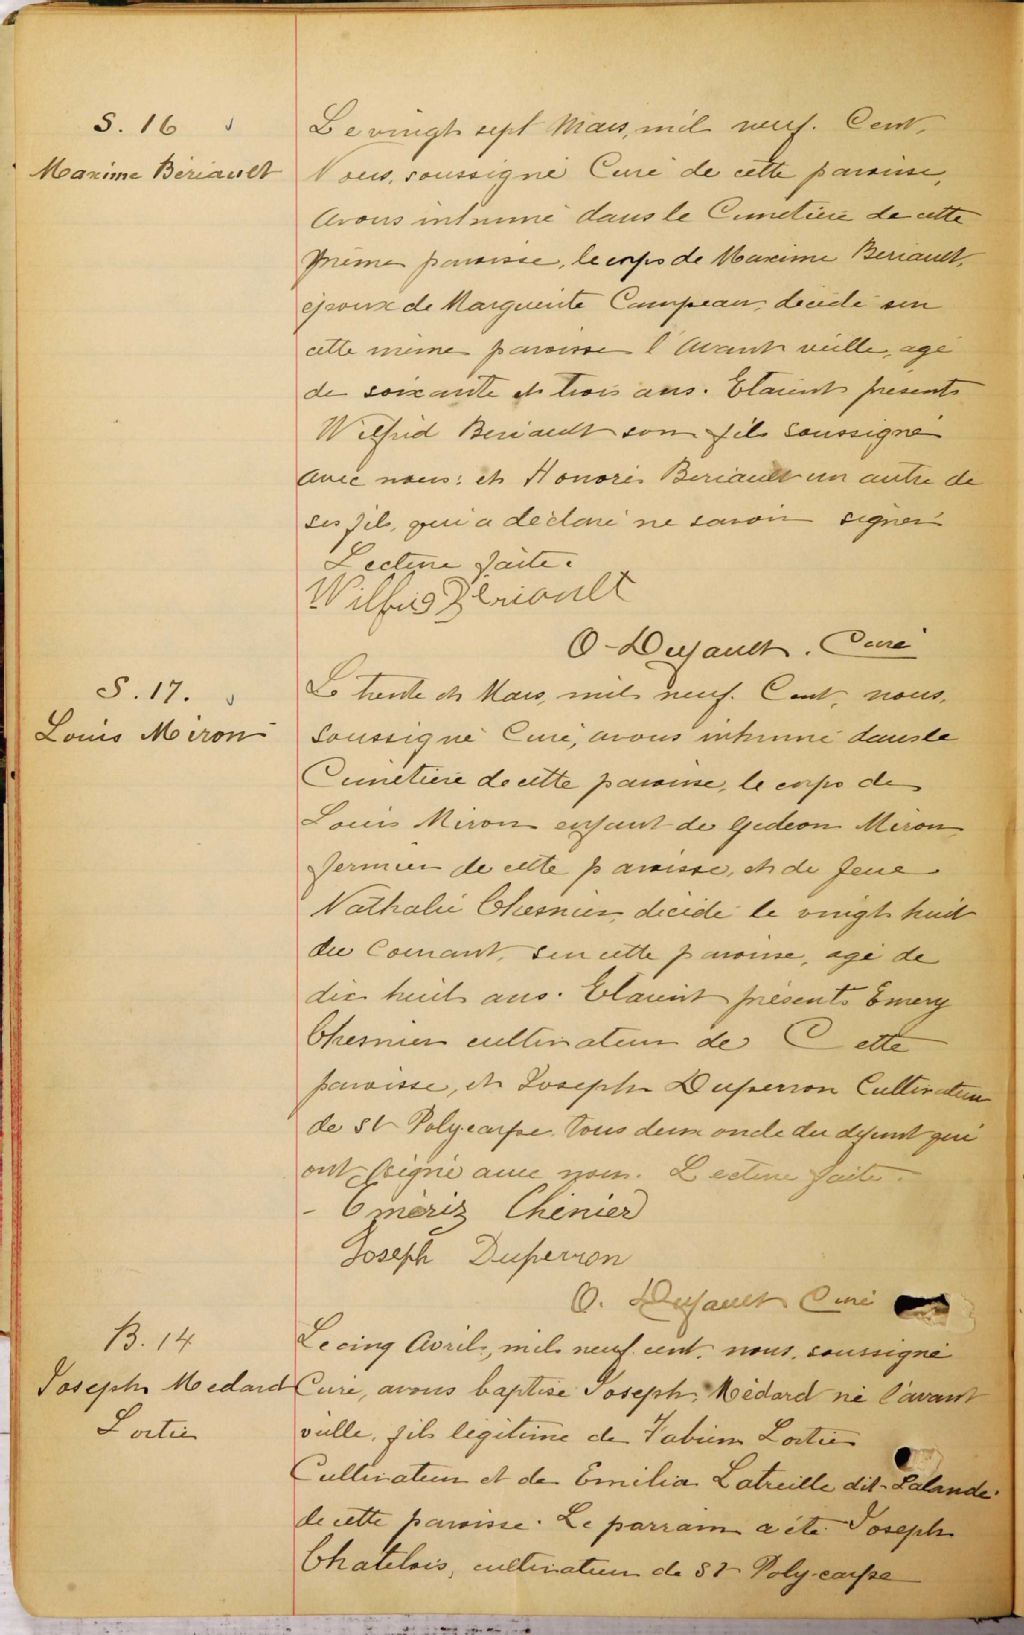 S. 16
Maxime Bériault
Le vingt sept Mars, mil neuf. Cent,
Nous, soussigné Curé de cette paroisse,
avons inhumé dans le Cimetière de cette
même paroisse, le corps de Maxime Bériault,
époux de Marguerite Campeau, décédé en
cette même paroisse l'avant veille, agé
de soixante et trois ans. Etaient présents
Wilfrid Beriault son fils soussigné
avec nous: et Honoré Beriault un autre de
ses fils, qui a déclaré ne savoir signer
Lecture faite.
Wilfrid Bériault
O-Dufault. Curé
S. 17.
Louis Miron
Le trente et Mars, mil neuf. Cent, nous,
soussigné Curé, avons inhumé dans le
Cimetière de cette paroisse, le corps de
Louis Miron enfant de Gedeon Miron,
fermier de cette paroisse, et de feue
Nathalie Chesnier, décédé le vingt huit
du courant, en cette paroisse, agé de
dix huit ans. Etaient présents Emery
Chesnier cultivateur de Cette
paroisse, et Joseph Duperron Cultivateur
de St Polycarpe tous deux oncle du défunt qui
ont signé avec nous. Lecture faite.
- Emériz Chénier
Joseph Duperron
O. Dufault Curé
B. 14
Joseph Medard
Lortie
Le cinq Avril, mil neuf cent, nous, soussigné
Curé, avons baptisé Joseph, Médard né l'avant
veille, fils légitime de Fabien Lortie
Cultivateur et de Emilia Latreille dit-Lalande
de cette paroisse. Le parrain a été Joseph
Chatelois, cultivateur de St Polycarpe